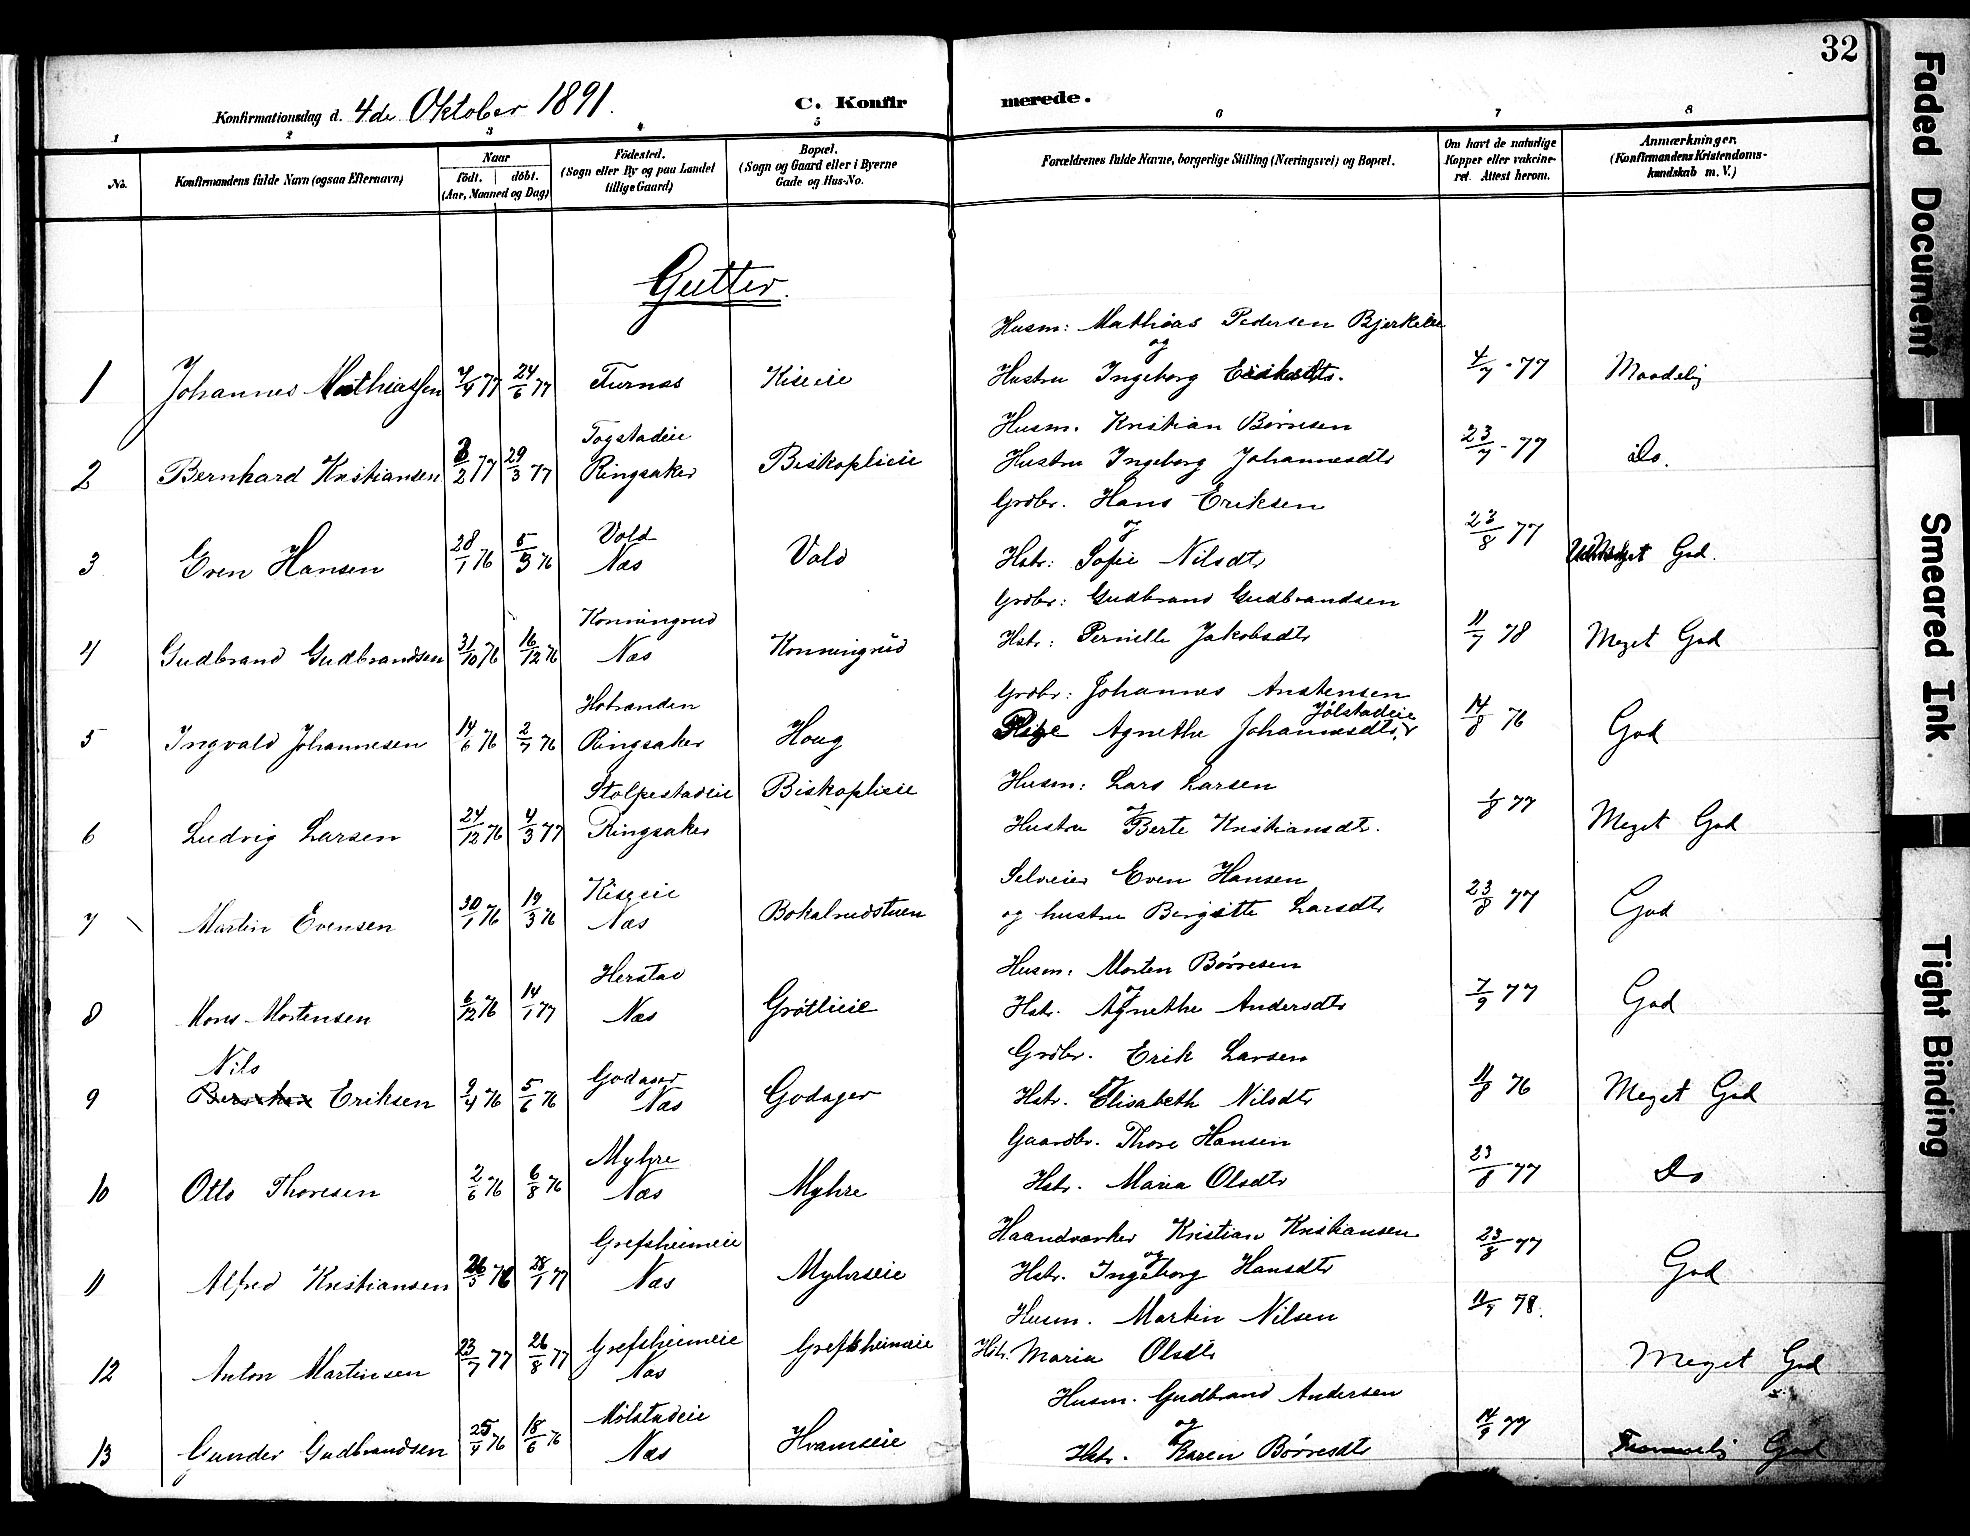 32
Konfirmationsdag d. 4de Oktober 1891.
C. Konfirmerede.
1 2 3 4 5 6 7 8
No.
Konfirmandens fulde Navn (ogsaa Efternavn)
Naar
født. døbt.
(Aar, Maaned og Dag)
Fødested.
(Sogn eller By og paa Landet
tillige Gaard)
Bopæl.
(Sogn og Gaard eller i Byerne
Gade og Hus-No.
Forældrenes fulde Navne, borgerlige Stilling (Næringsvei) og Bopæl.
Om havt de naturlige
Kopper eller vakcine-
ret. Attest herom.
Anmærkninger.
(Konfirmandens Kristendoms-
kundskab m. V.)
Gutter.
Husm: Mathias Pedersen Bjerkelie
og
1 Johannes Mathiassen 7/4 77 24/6 77 Furnæs Kiseeie Hustru Ingeborg 4/7 - 77 Maadelig
Togstadeie Husm. Kristian Børresen
2 Bernhard Kristiansen 3/2 77 29/3 77 Ringsaker Biskoplieie Hustru Ingeborg Johannesdtr 23/7 - 77 Do.
Vold Grdbr. Hans Eriksen
og
3 Even Hansen 28/1 76 5/3 76 Næs Vold Hstr: Sofie Nilsdtr 23/8 77 Meget God.
Konningrud Grdbr: Gudbrand Gudbrandsen
4 Gudbrand Gudbrandsen 31/10 76 16/12 76 Næs Konningrud Hstr: Pernille Jakobsdtr 11/7 78 Meget God
Grdbr: Johannes Anstensen
Jølstadeie
5 Ingvald Johannesen 14/6 76 2/7 76 Ringsaker Houg Pige Agnethe Johannesdtr. 14/8 76 God
Stolpestadeie Biskoplieie Husm: Lars Larsen
og
6 Ludvig Larsen 24/12 76 4/3 77 Ringsaker Hustru Berte Kristiansdtr. 1/8 77 Meget God
Kiseeie Selveier Even Hansen
7 Martin Evensen 30/1 76 19/3 76 Næs Bokalrudstuen og hustru Bergitte Larsdtr 23/8 77 God
Herstad Husm: Morten Børresen
og
8 Mons Mortensen 6/12 76 14/1 77 Næs Grøtlieie Hstr. Agnethe Andersdtr 7/9 77 God
Nils Godager Grdbr. Erik Larsen
og
9 Eriksen 9/4 76 5/6 76 Næs Godager Hstr. Elisabeth Nilsdtr 11/8 76 Meget God
Myhre Gaardbr. Thore Hansen
10 Otto Thoresen 2/6 76 6/8 76 Næs Myhre Hstr. Maria Olsdtr 23/8 77 Do
Grefsheimeie Haandværker Kristian Kristiansen
og
11 Alfred Kristiansen 26/5 76 28/1 77 Næs Myhrseie Hstr. Ingeborg Hansdtr 23/8 77 God
Husm. Martin Nilsen 11/7 78.
12 Anton Martinsen 23/7 77 26/8 77 Grefsheimeie Næs Grefsheimeie Hstr. Maria Olsdtr Meget God
Mølstadeie Husm. Gudbrand Andersen
og
13 Gunder Gudbrandsen 25/4 76 18/6 76 Næs Hvamseie Hstr. Karen Børresdtr 14/9 77 Temmelig God
Faded Document
Smeared Ink
Tight Binding